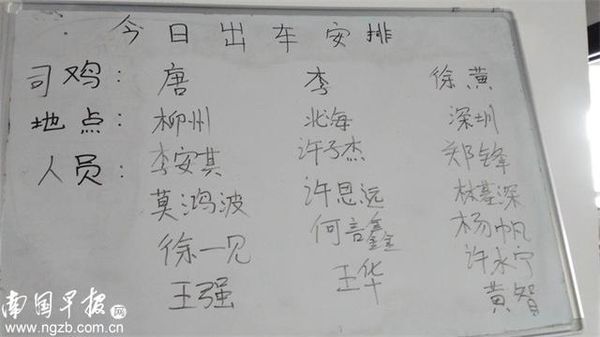 今日出车安排
司鸡： 唐 李 徐黄
地点： 柳州 北海 深圳
人员： 李安其 许子杰 郑锋
莫鸿波 许思远 林基深
徐一见 何言鑫 杨帆
王强 王华 许永宁
黄智
南国早报网
www.ngzb.com.cn